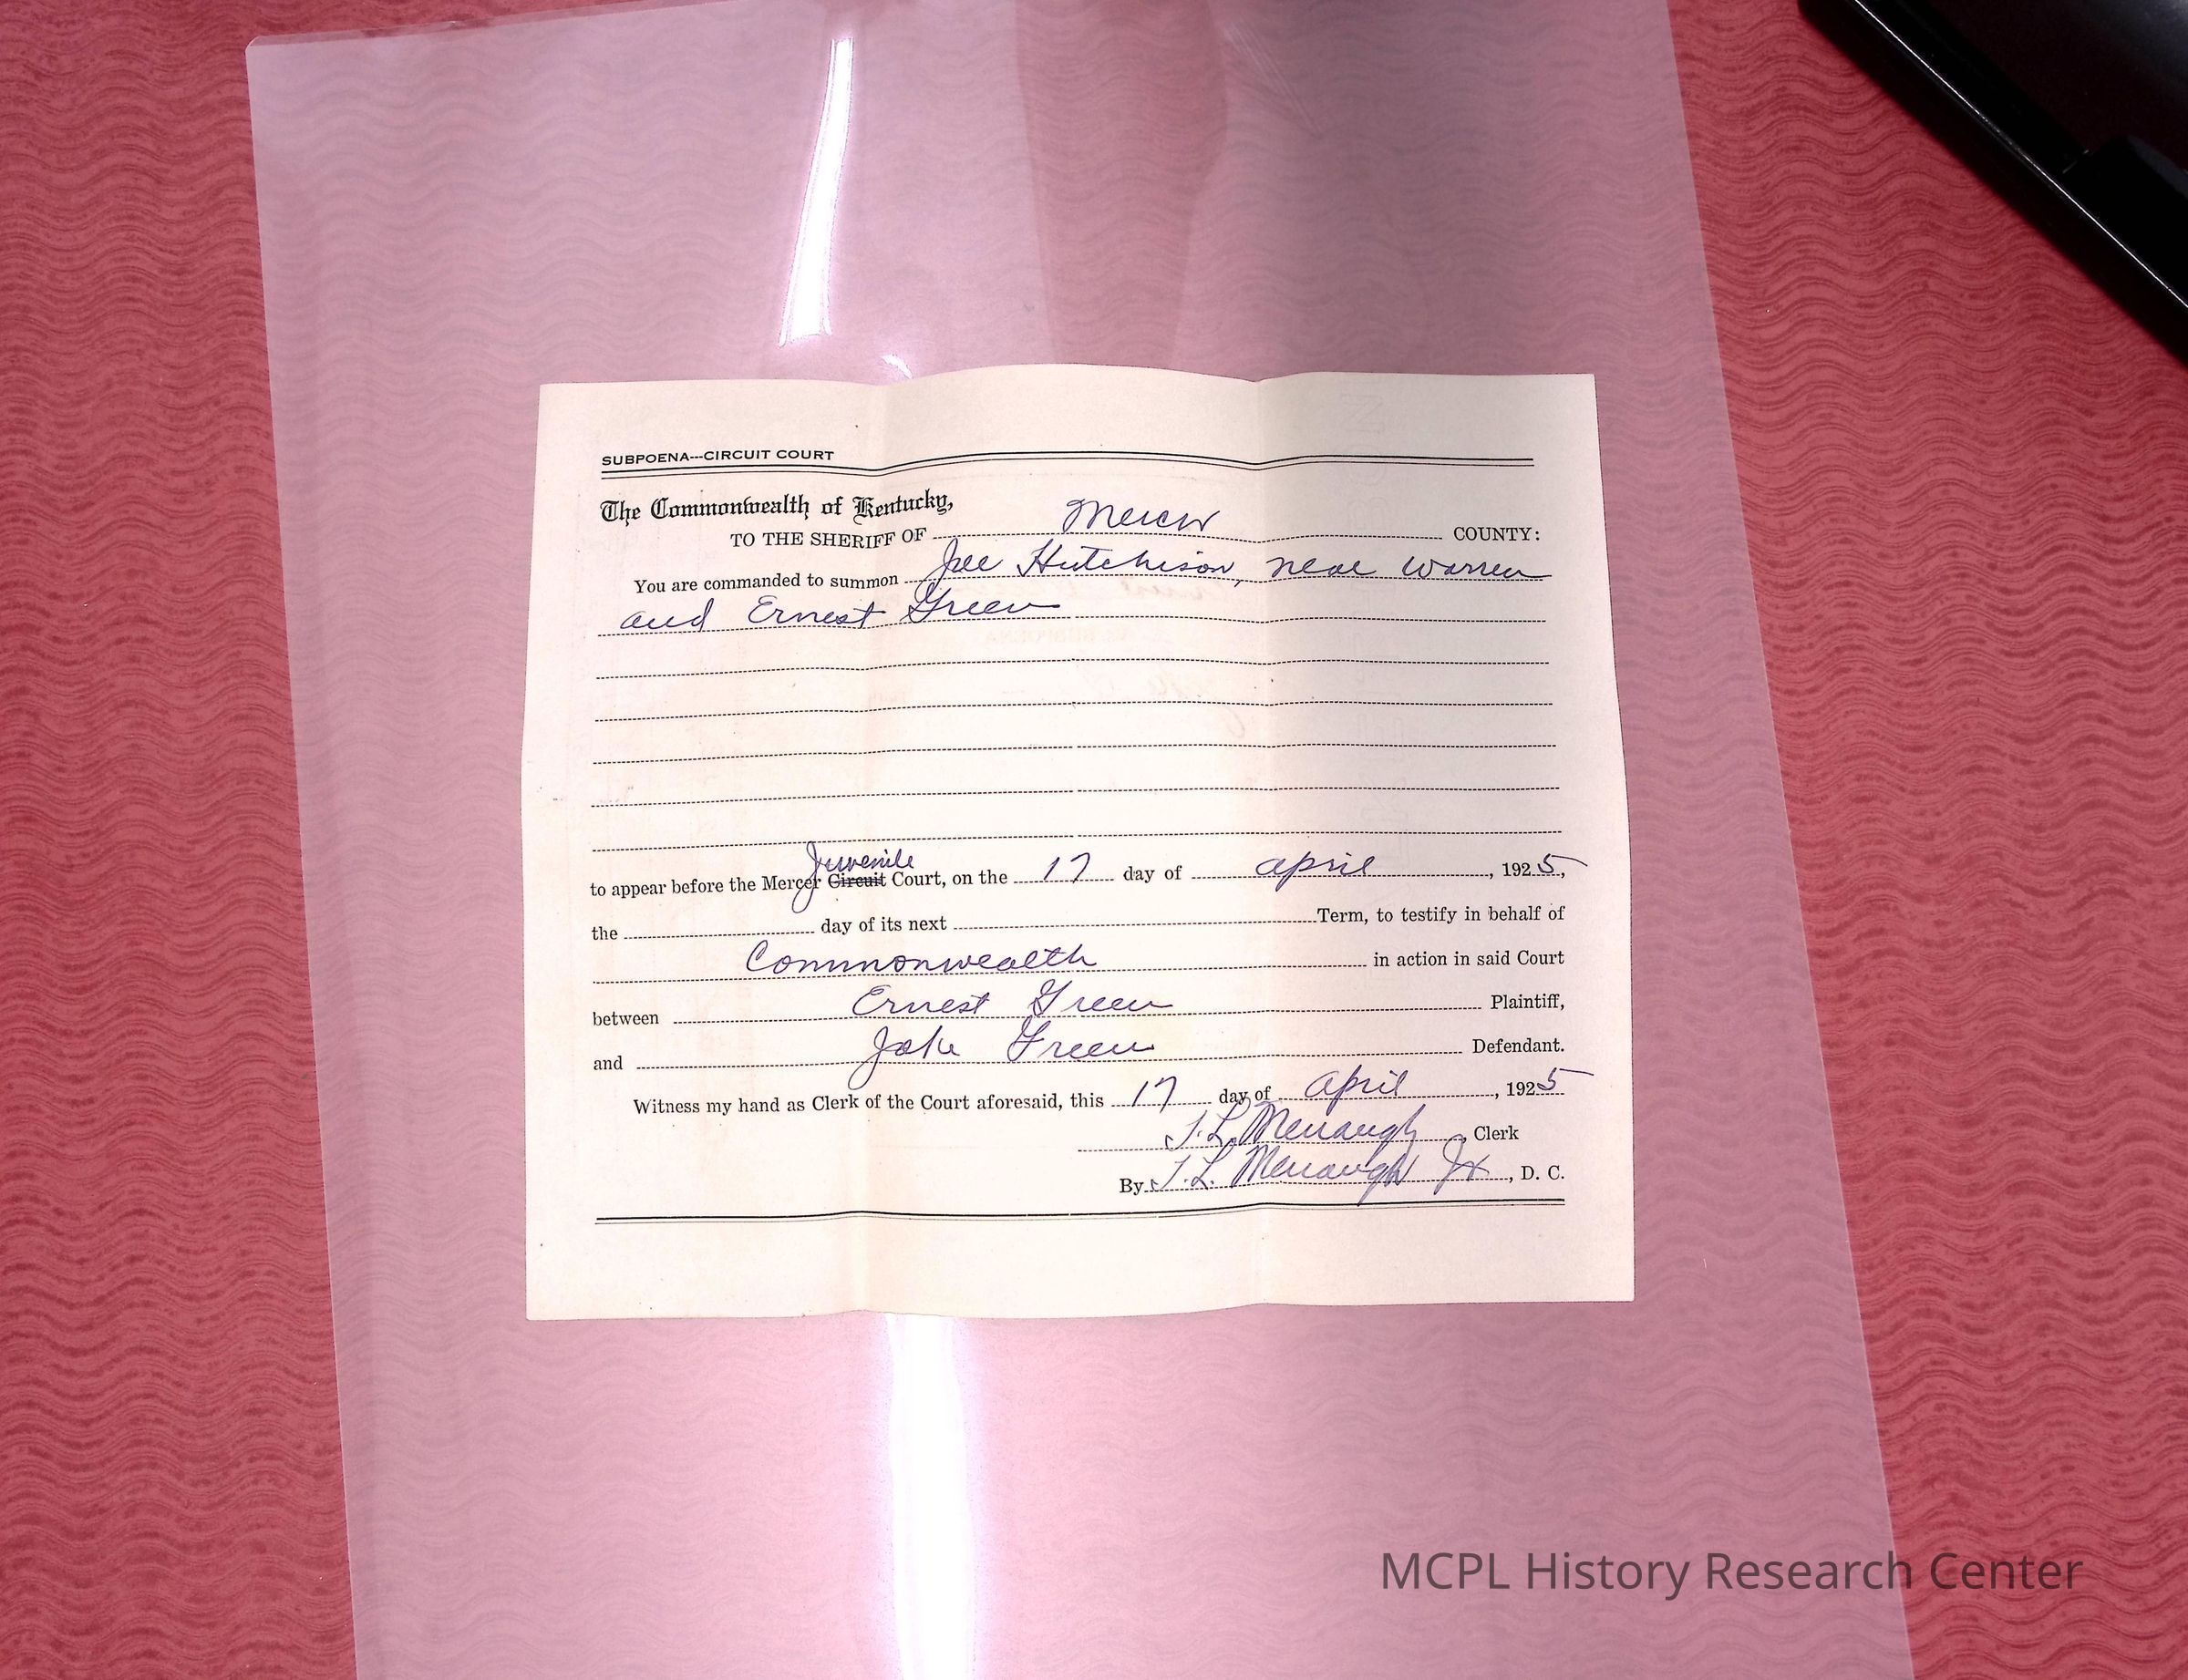 SUBPOENA---CIRCUIT COURT
The Commonwealth of Kentucky,
TO THE SHERIFF OF Mercer COUNTY:
You are commanded to summon Joe Hutchison, neal Warren
and Ernest Green
Juvenile
to appear before the Mercer Circuit Court, on the 17 day of april, 1925,
the day of its next Term, to testify in behalf of
Commonwealth in action in said Court
between Ernest Green Plaintiff,
and Jake Green Defendant.
Witness my hand as Clerk of the Court aforesaid, this 17 day of april, 1925
T.L. Menaugh, Clerk
By T.L. Menaugh Jr, D. C.
MCPL History Research Center